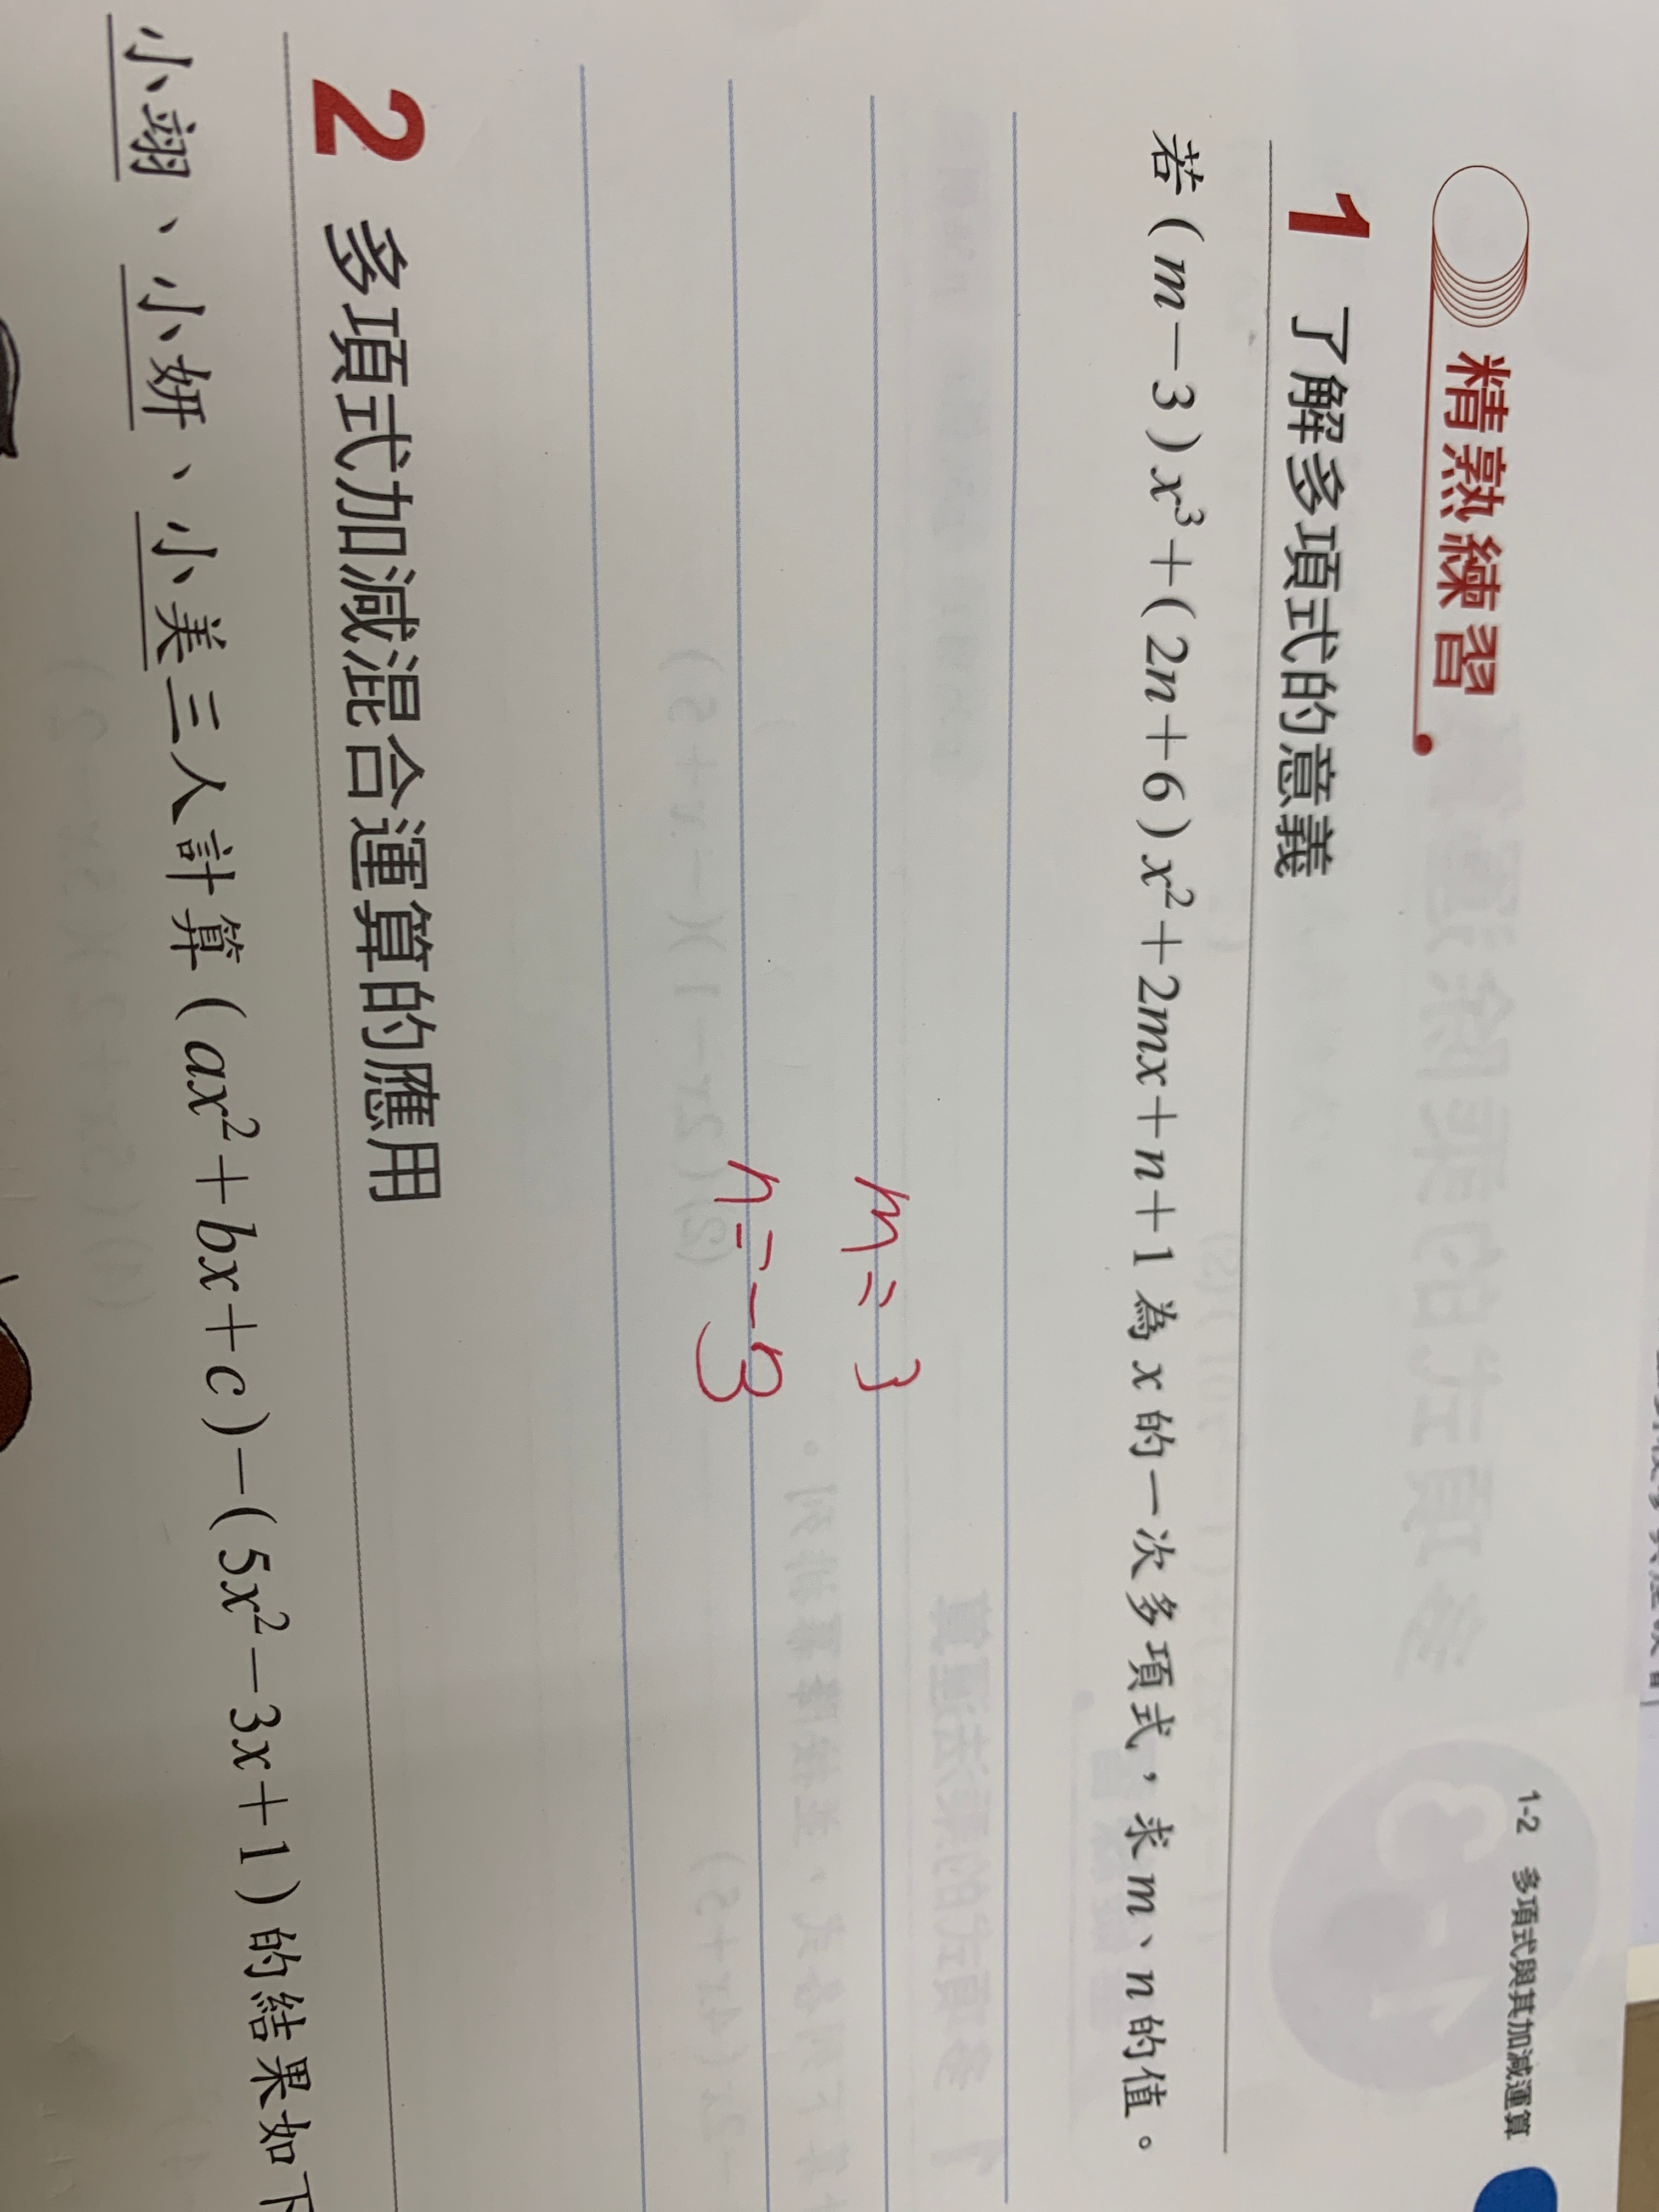 1-2 多項式與其加減運算
精熟練習
1 了解多項式的意義
若(m-3)x³+(2n+6)x²+2mx+n+1為x的一次多項式,求m、n的值。
m=3
n=-3
2 多項式加減混合運算的應用
小翊、小妍、小美三人計算(ax²+bx+c)-(5x²-3x+1)的結果如下